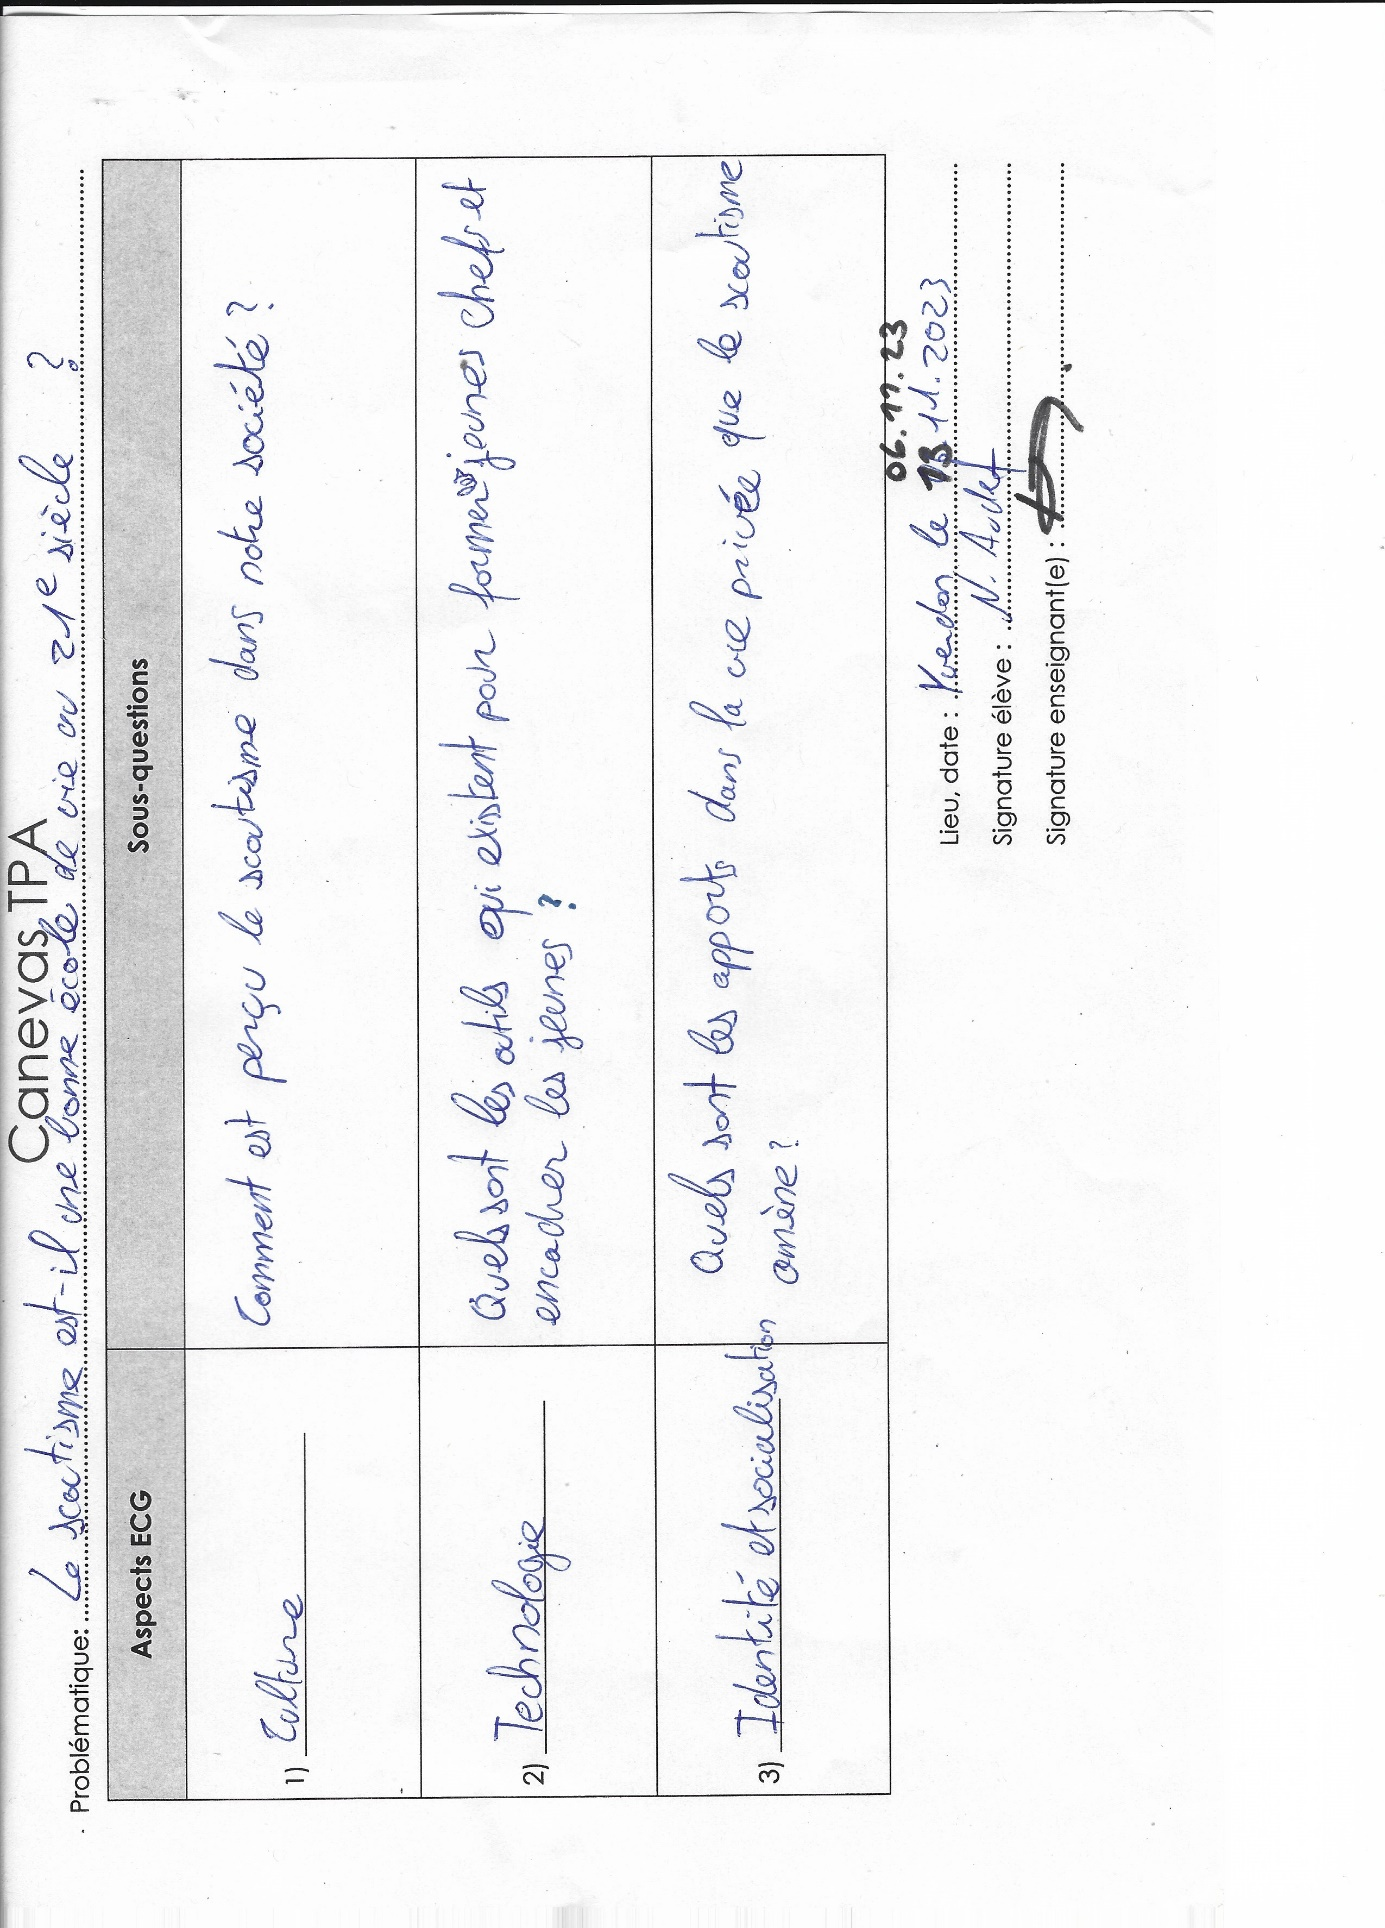 Canevas TPA
Problématique: Le scoutisme est-il une bonne école de vie au 21e siècle ?
Aspects ECG
Sous-questions
1) Culture
Comment est perçu le scoutisme dans notre société ?
2) Technologie
Quels sont les outils qui existent pour former jeunes chefs et
encadrer les jeunes ?
3) Identité et socialisation
Quels sont les apports dans la vie privée que le scoutisme
amène ?
06.11.23
Lieu, date : Yverdon le 13.11.2023
Signature élève : N. Audet
Signature enseignant(e) :